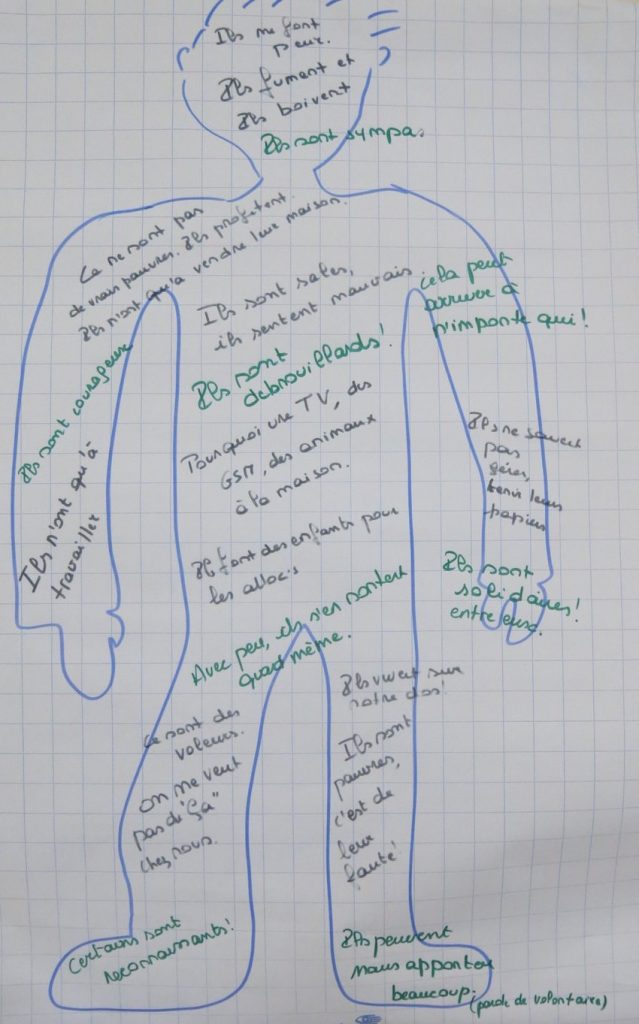 Ils me font
peur.
Ils fument et
Ils boivent
Ils sont sympa.
Ce ne sont pas
de vrais pauvres. Ils profitent.
Ils n'ont qu'à vendre leur maison.
Ils sont sales,
ils sentent mauvais
cela peut
arriver à
n'importe qui !
Ils sont courageux
Ils sont
debrouillards !
Pourquoi une TV, des
GSM, des animaux
à la maison.
Ils ne savent
pas
gérer,
tenir leurs
papiers
Ils n'ont qu'à
travailler
Ils font des enfants pour
les alloc's
Ils sont
solidaires !
entre eux.
Avec peu, ils s'en sortent
quad même.
Ils vivent sur
notre dos !
Ce sont des
voleurs.
on ne veut
pas de "ça"
chez nous.
Ils sont
pauvres,
c'est de
leur
faute !
Certains sont
reconnaissants !
Ils peuvent
nous apporter
beaucoup. (parole de volontaire)